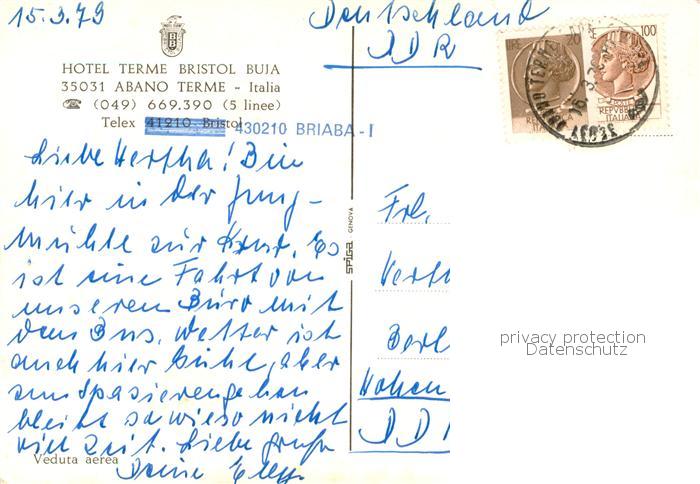 15.3.79
Deutschland
DDR
HOTEL TERME BRISTOL BUJA
35031 ABANO TERME - Italia
☎ (049) 669.390 (5 linee)
Telex 41210 Bristol
430210 BRIABA-I
Liebe Hertha! Bin
hier in der Jung-
mühle zur Kur. Es
ist eine Fahrt von
unseren Büro mit
dem Bus. Wetter ist
auch hier kühl, aber
zum Spazierengehen
bleibt sowieso nicht
viel Zeit. Liebe Grüße
Deine
Veduta aerea
SPIGA GENOVA
Frl.
Berl
Hohen
DD
LIRE 70
100
REPVBBLICA
ITALIANA
REPVBBLICA
ITALIANA
ABANO TERME
privacy protection
Datenschutz